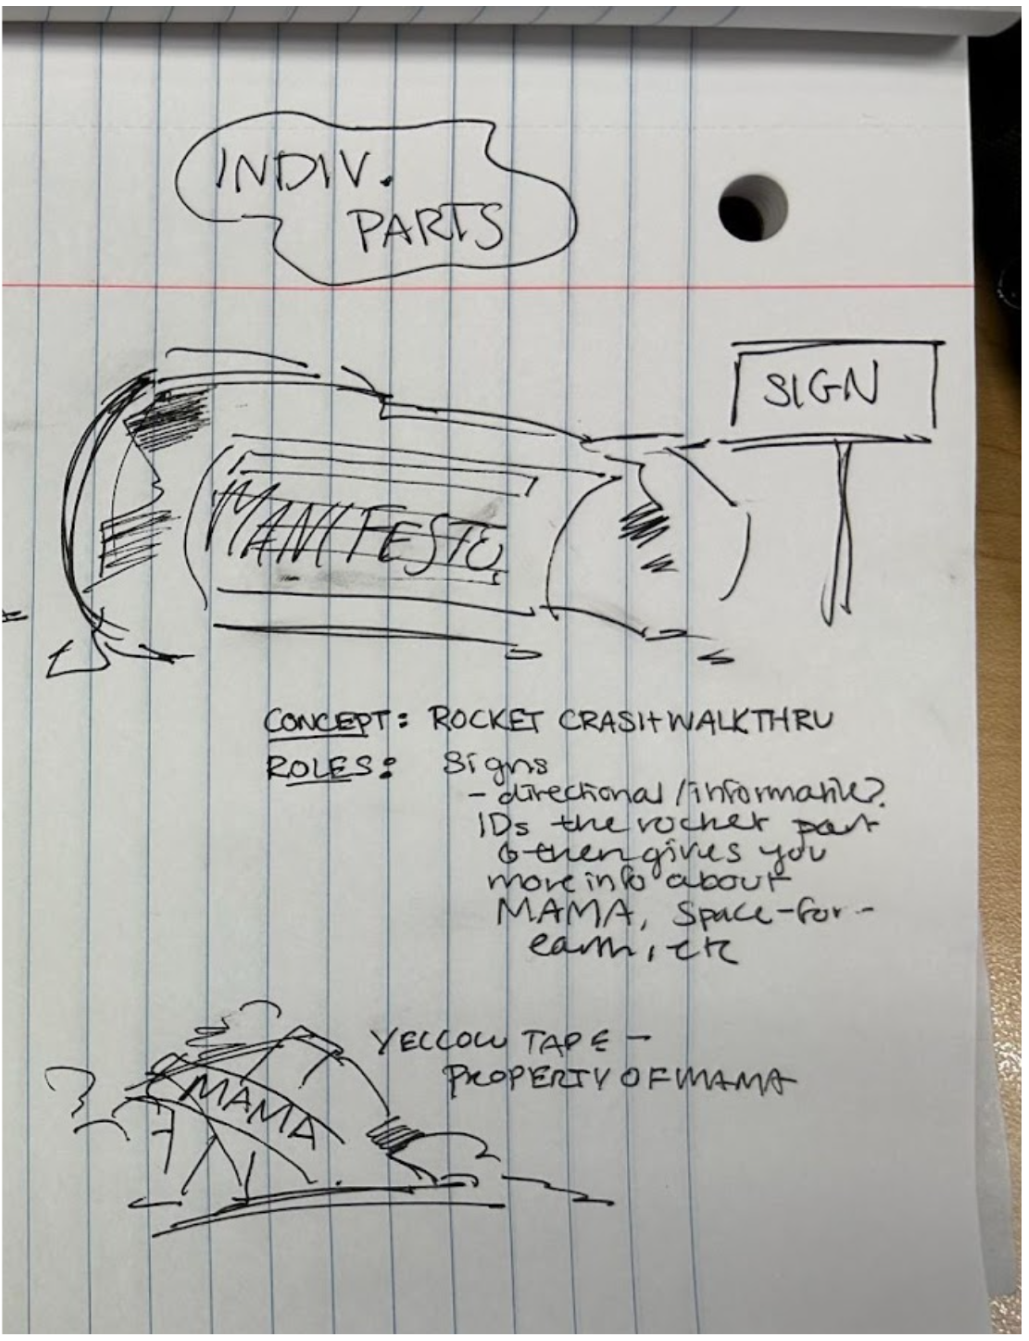 INDIV.
PARTS
SIGN
MANIFESTO
CONCEPT: ROCKET CRASH WALKTHRU
ROLES: Signs
- directional/informative?
IDs the rocket part
& then gives you
more info about
MAMA, Space-for-
earth, etc
YELLOW TAPE -
PROPERTY OF MAMA
MAMA